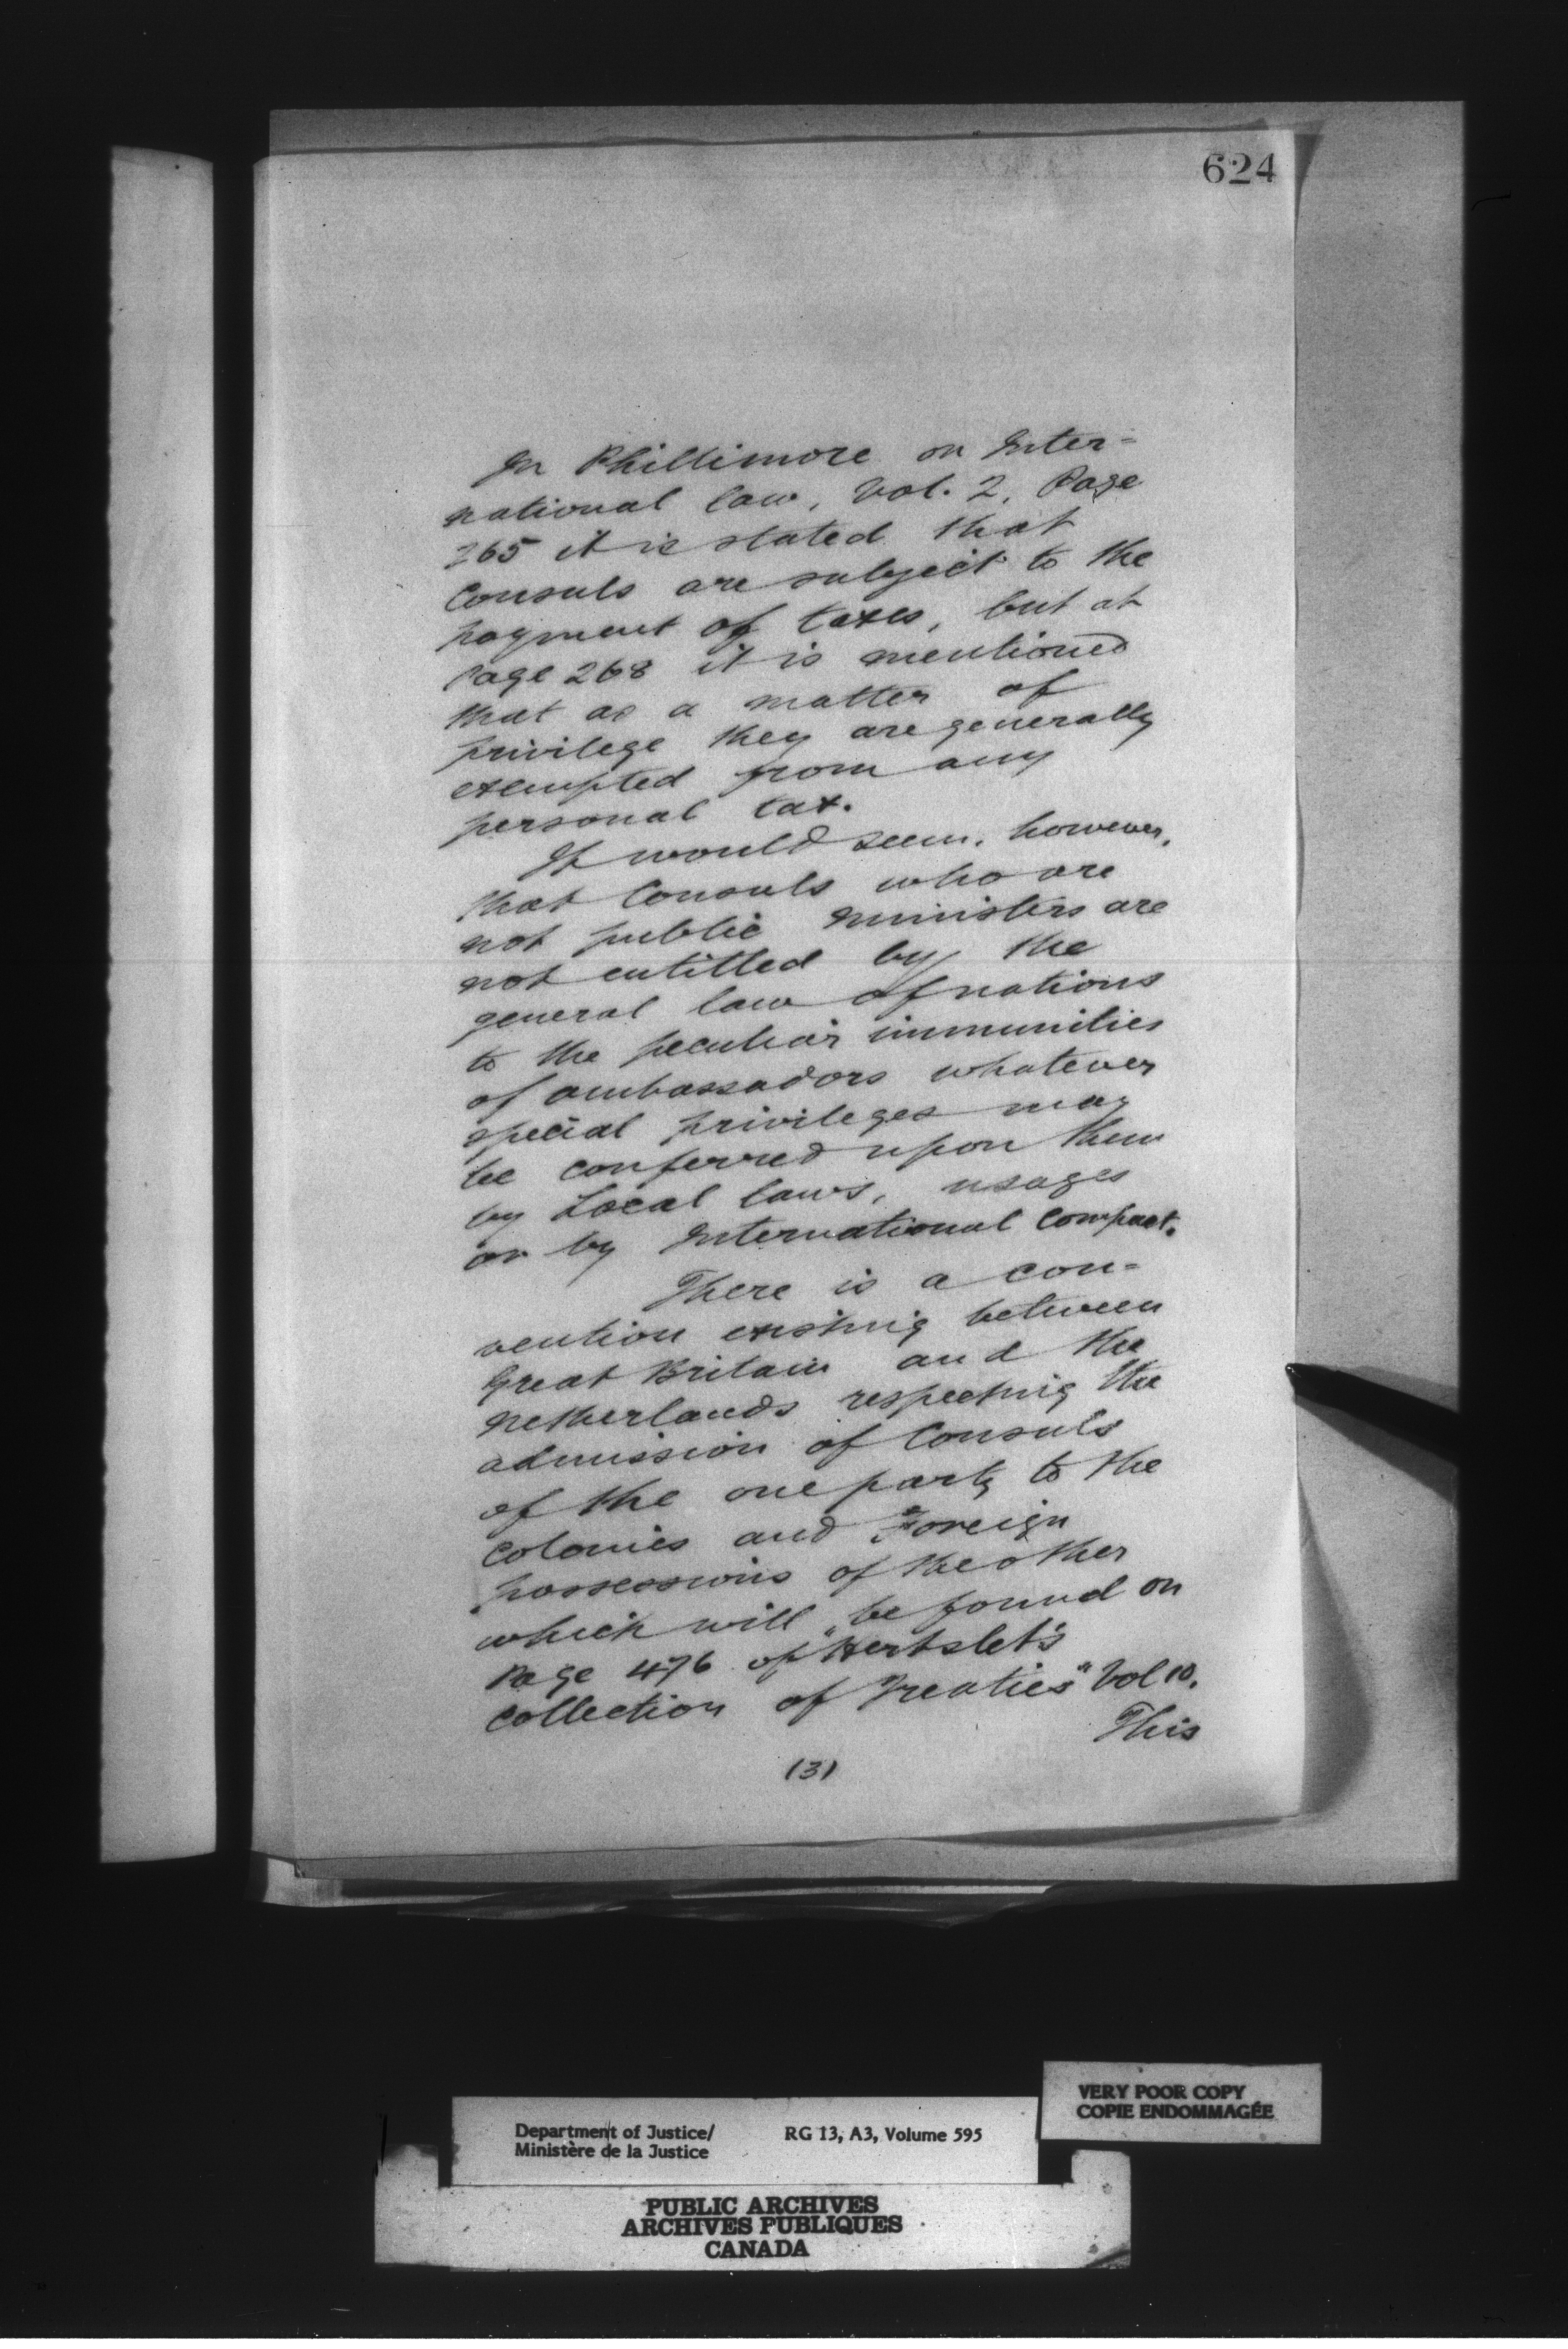 624
In Phillimore on Inter=
national law, Vol. 2, Page
265 it is stated that
Consuls are subject to the
payment of taxes, but at
Page 268 it is mentioned
that as a matter of
privilege they are generally
exempted from any
personal tax.
It would seem, however,
that Consuls who are
not public ministers are
not entitled by the
general law of nations
to the peculiar immunities
of ambassadors whatever
special privileges may
be conferred upon them
by Local laws, usages
or by International Compact.
There is a con=
vention existing between
Great Britain and the
Netherlands respecting the
admission of Consuls
of the one party to the
Colonies and Foreign
possessions of the other
which will be found on
Page 476 of "Hertslet's
Collection of Treaties" Vol 10.
This
(3)
VERY POOR COPY
COPIE ENDOMMAGÉE
Department of Justice/ RG 13, A3, Volume 595
Ministère de la Justice
PUBLIC ARCHIVES
ARCHIVES PUBLIQUES
CANADA